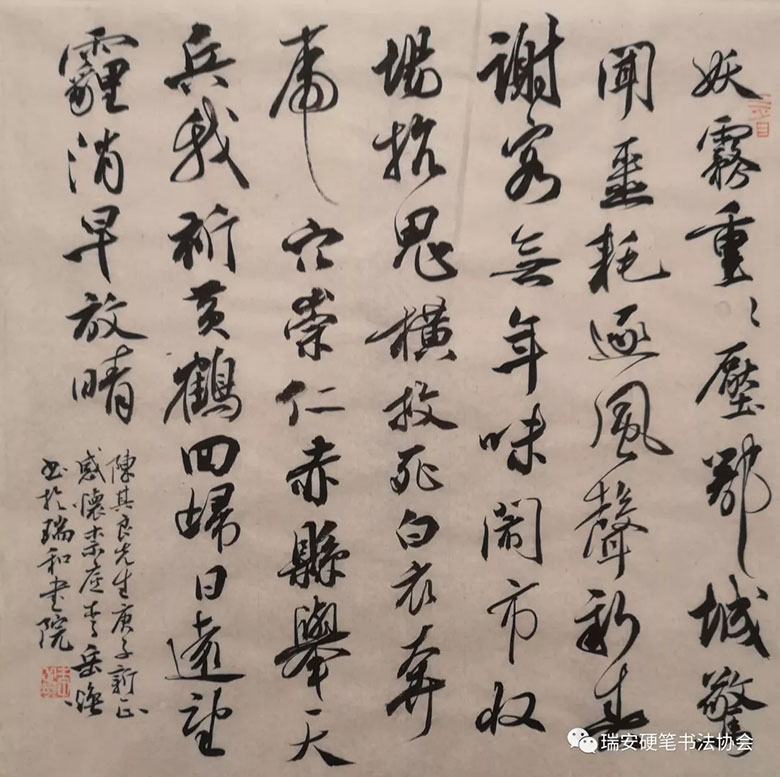 妖霧重〻壓鄂城驚
聞噩耗逐風聲新春
謝客無年味鬧市收
場抗鬼橫救死白衣奔
虎穴崇仁赤縣舉天
兵我祈黃鶴回歸日遠望
霾消早放晴
陳其良先生庚子新正
感懷
書於瑞和書院
瑞安硬笔书法协会